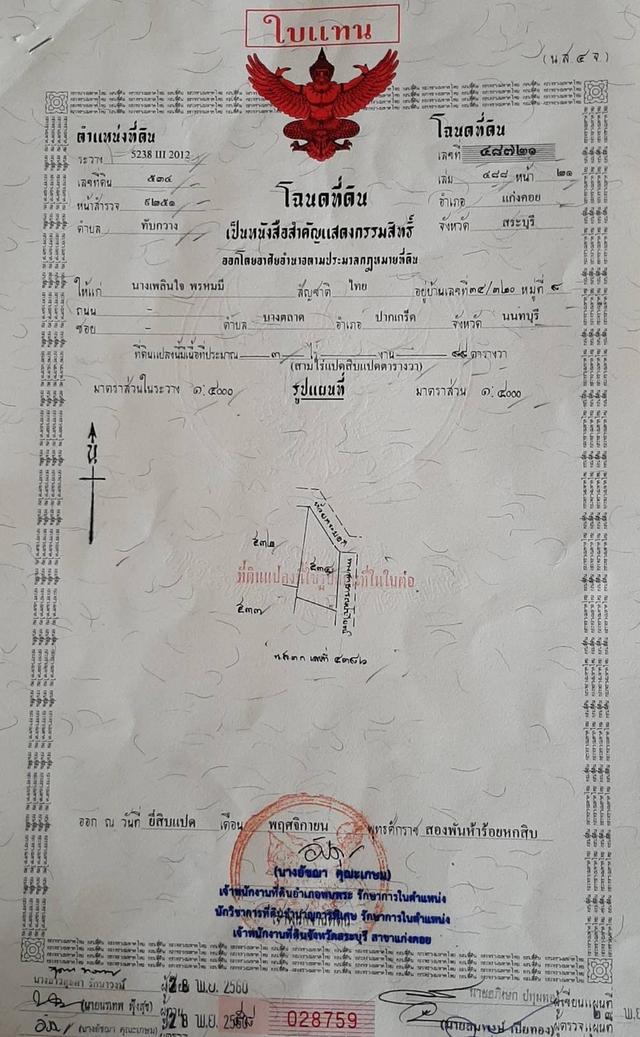 ใบแทน
(น.ส.๔ จ.)
ตำแหน่งที่ดิน
ระวาง 5238 III 2012
เลขที่ดิน ๕๓๔
หน้าสำรวจ ๙๒๕๑
ตำบล ทับกวาง
โฉนดที่ดิน
เลขที่ ๔๘๗๒๑
เล่ม ๔๘๘ หน้า ๒๑
อำเภอ แก่งคอย
จังหวัด สระบุรี
โฉนดที่ดิน
เป็นหนังสือสำคัญแสดงกรรมสิทธิ์
ออกโดยอาศัยอำนาจตามประมวลกฎหมายที่ดิน
ให้แก่ นางเพลินใจ พรหมมี สัญชาติ ไทย อยู่บ้านเลขที่ ๓๔/๓๒๐ หมู่ที่ ๘
ถนน - ซอย - ตำบล บางตลาด อำเภอ ปากเกร็ด จังหวัด นนทบุรี
ที่ดินแปลงนี้มีเนื้อที่ประมาณ ๓ ไร่ - งาน ๘๘ ตารางวา
(สามไร่แปดสิบแปดตารางวา)
มาตราส่วนในระวาง ๑:๔๐๐๐ รูปแผนที่ มาตราส่วน ๑:๔๐๐๐
น
๕๓๒
๕๓๔
ที่ดินแปลงนี้
ที่ในใบต่อ
๕๓๓
ทางสาธารณประโยชน์
น.ส.๓ ก เลขที่
ออก ณ วันที่ ยี่สิบแปด เดือน พฤศจิกายน พุทธศักราช สองพันห้าร้อยหกสิบ
(นางอัชฌา คุณะเกษม)
เจ้าพนักงานที่ดินอำเภอพบพระ รักษาการในตำแหน่ง
นักวิชาการที่ดินชำนาญการพิเศษ รักษาการในตำแหน่ง
เจ้าพนักงานที่ดินจังหวัดสระบุรี สาขาแก่งคอย
28 พ.ย. 2560
(นางอัชฌา คุณะเกษม)
28 พ.ย. 2560
028759
ผู้เขียนแผนที่
ผู้ตรวจแผนที่